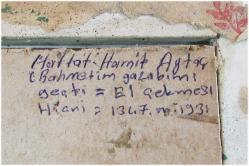 Hattat: Hamit Aytaç
(Rahmetim gazabımı
geçti = El çekmesi
Hicri = 1347. mi. 1931